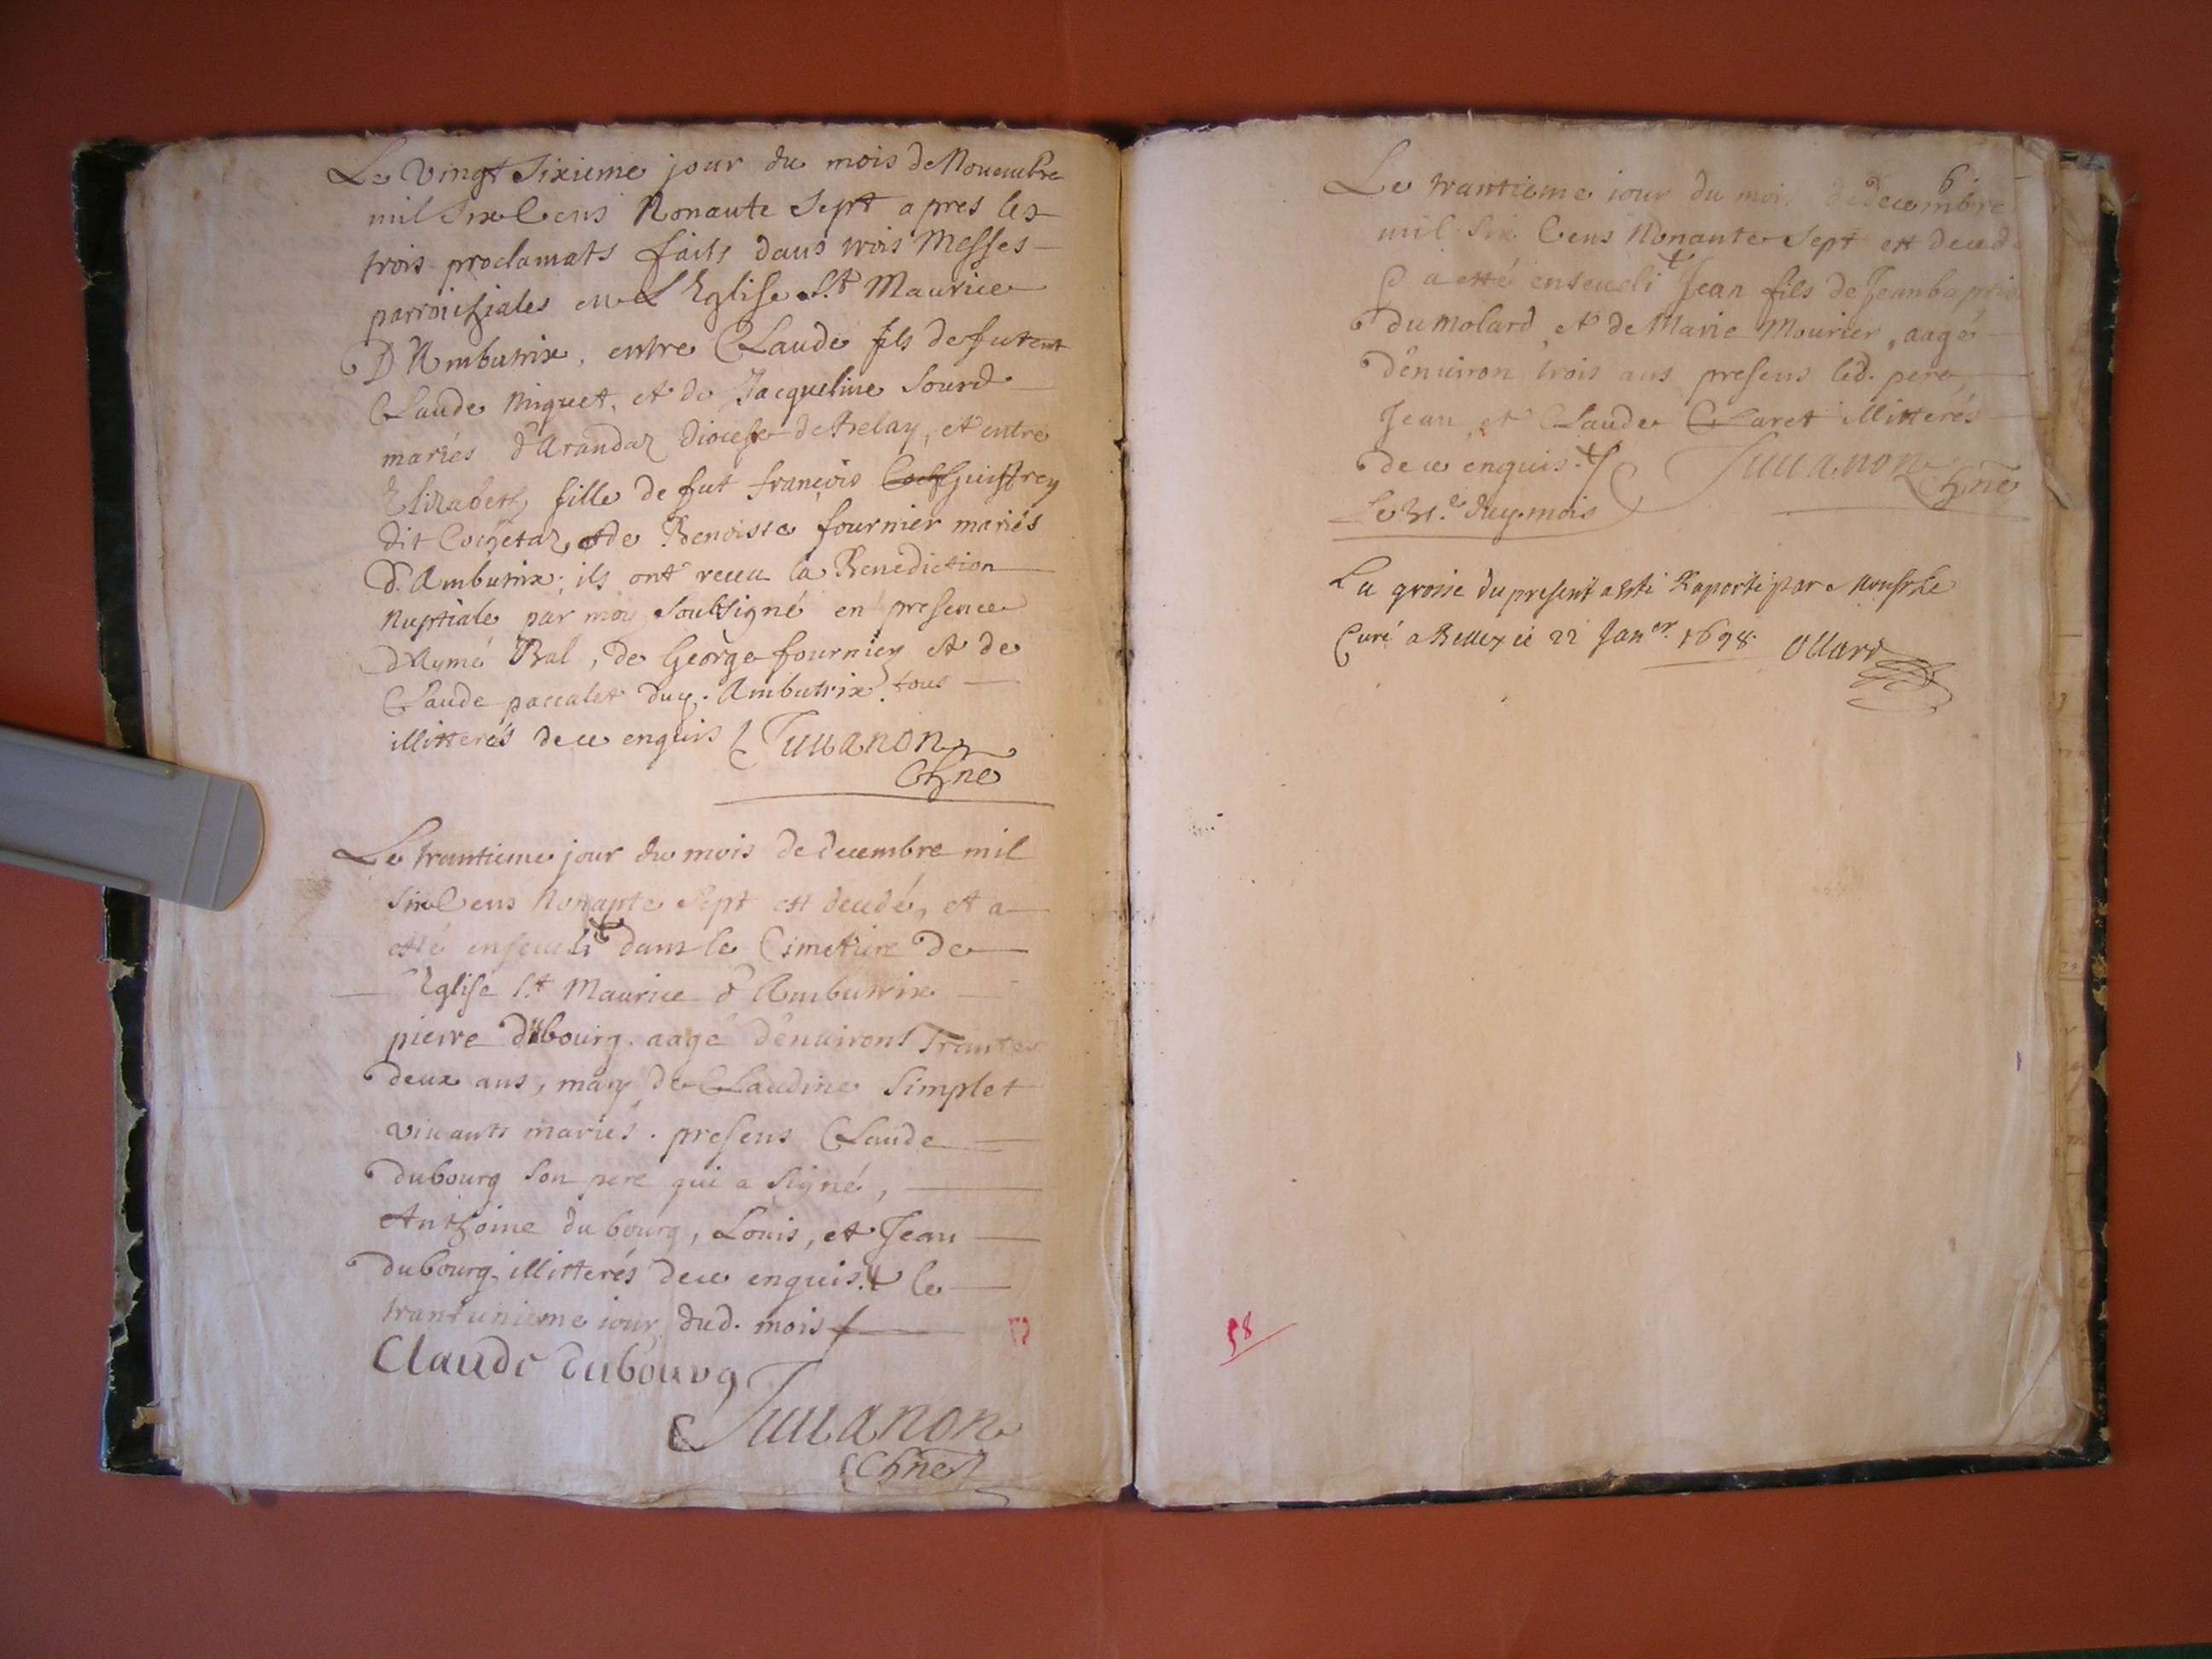 Le vingt sixieme jour du mois de Nouembre
mil six Cens Nonante Sept apres les
trois proclamats faits dans trois Messes
parroissiales en L'Eglise St Maurice
D'Ambutrix, entre Claude fils de fut
Claude Miguet, et de Jacqueline Sourd
mariés d'Arandaz Diocese de Belay, et entre
Elizabeth fille de fut françois Guiffrey
dit Cochetaz et de Benoiste fournier mariés
d'Ambutrix; ils ont receu la Benediction
Nuptiale par moy soubsigné en presence
d'Aymé Bal, de George fournier et de
Claude paccalet duy. Ambutrix tous
illitterés de ce enquis Juuanon
Chne
Le trantieme jour du mois de decembre mil
six Cens Nonante Sept est decedé, et a
esté enseueli + dans le Cimetiere de
l'Eglise St Maurice d'Ambutrix
pierre dubourg. aagé d'enuirons Trante
deux ans, mary de Claudine Simplet
viuants mariés. presens Claude
dubourg son pere qui a signé,
Anthoine dubourg, Louis, et Jean
dubourg illitterés de ce enquis. + le
trantunieme iour dud. mois
Claude dubourg
Juuanon
Chne
6
Le trantieme iour du mois de decembre
mil six Cens Nonante Sept est decedé
& a esté enseueli + Jean fils de Jean baptiste
du molard et de Marie Mourier, aagé
d'enuiron trois ans presens led. pere,
Jean et Claude Claret illitterés
de ce enquis. + Juuanon
Chne
Le 31.e duy. mois
La grosse du present a esté Raporté par Monsr Le
Curé a Belley ce 22 Janer. 1698. Ollard
58